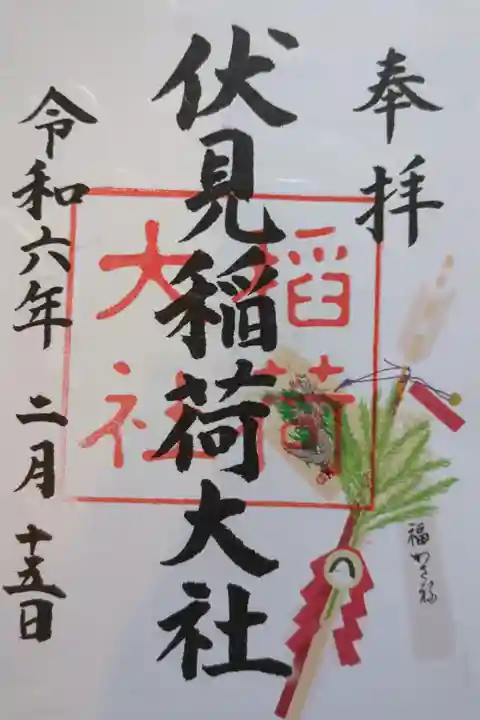 奉拝
伏見稲荷大社
稲荷
大社
令和六年 二月 十五日